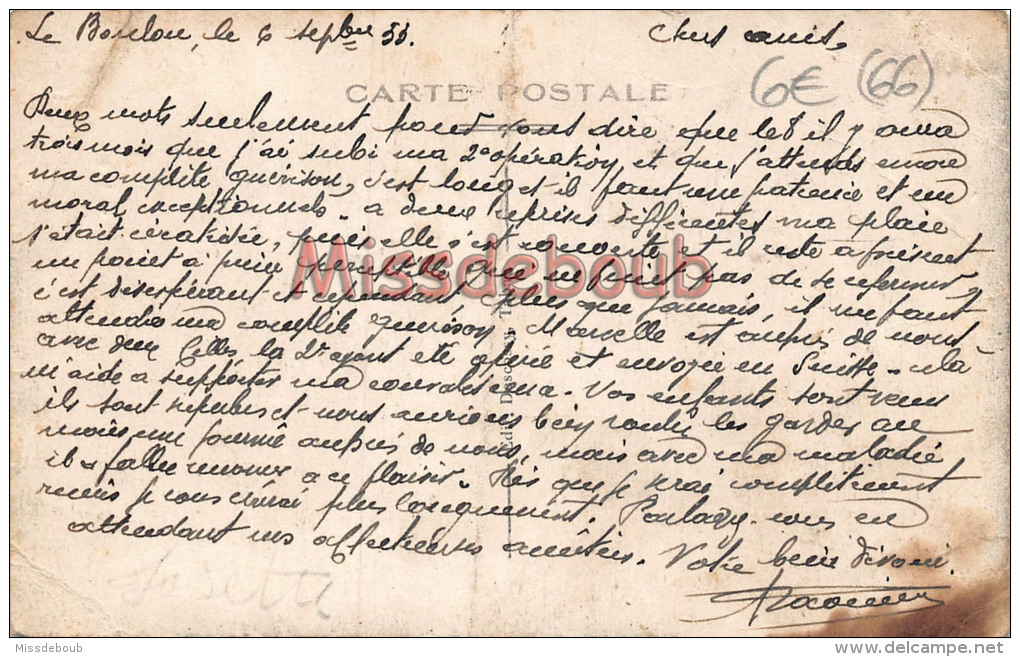 Le Boulou, le 6 sepbre 33.
Chers amis,
6€ (66)
CARTE POSTALE
Deux mots seulement pour vous dire que le 8 il y aura
trois mois que j'ai subi ma 2e opération et que j'attends encore
ma complète guérison, c'est long et il faut une patience et un
moral exceptionnels. à deux reprises différentes ma plaie
s'était cicatrisée, puis elle s'est rouverte et il reste à présent
un point à peine qui ne finit pas de se refermer,
c'est désespérant et cependant plus que jamais, il me faut
attendre ma complète guérison. Marcelle est auprès de nous
avec deux filles, la 2e ayant été opérée et envoyée en Suisse. cela
m'aide à supporter ma convalescence. Vos enfants sont venus
ils sont repartis et nous aurions bien voulu les garder au
moins une journée auprès de nous, mais avec ma maladie
il a fallu renoncer à ce plaisir. Dès que je serai complètement
remis je vous écrirai plus longuement. Partagez-vous en
attendant nos affectueuses amitiés. Votre bien dévoué.
Missdeboub
Missdeboub
www.delcampe.net